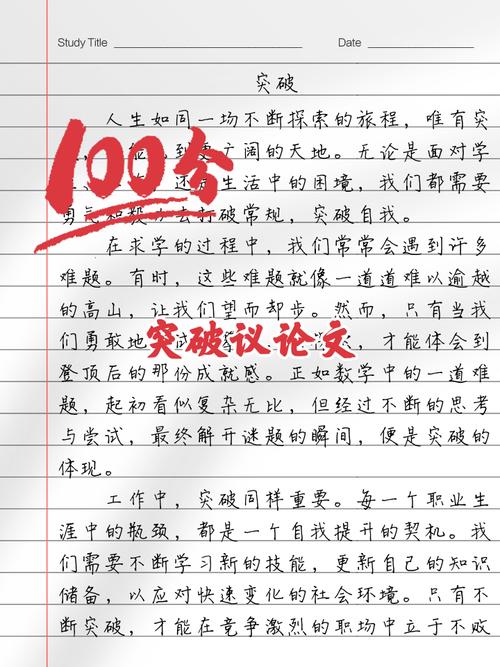 Study Title
Date
突破
人生如同一场不断探索的旅程，唯有突
到更广阔的天地。无论是面对学
还是生活中的困境，我们都需要
勇气和毅力去打破常规，突破自我。
100分
在求学的过程中，我们常常会遇到许多
难题。有时，这些难题就像一道道难以逾越
的高山，让我们望而却步。然而，只有当我
们勇敢地
，才能体会到
突破议论文
登顶后的那份成就感。正如数学中的一道难
题，起初看似复杂无比，但经过不断的思考
与尝试，最终解开谜题的瞬间，便是突破的
体现。
工作中，突破同样重要。每一个职业生
涯中的瓶颈，都是一个自我提升的契机。我
们需要不断学习新的技能，更新自己的知识
储备，以应对快速变化的社会环境。只有不
断突破，才能在竞争激烈的职场中立于不败